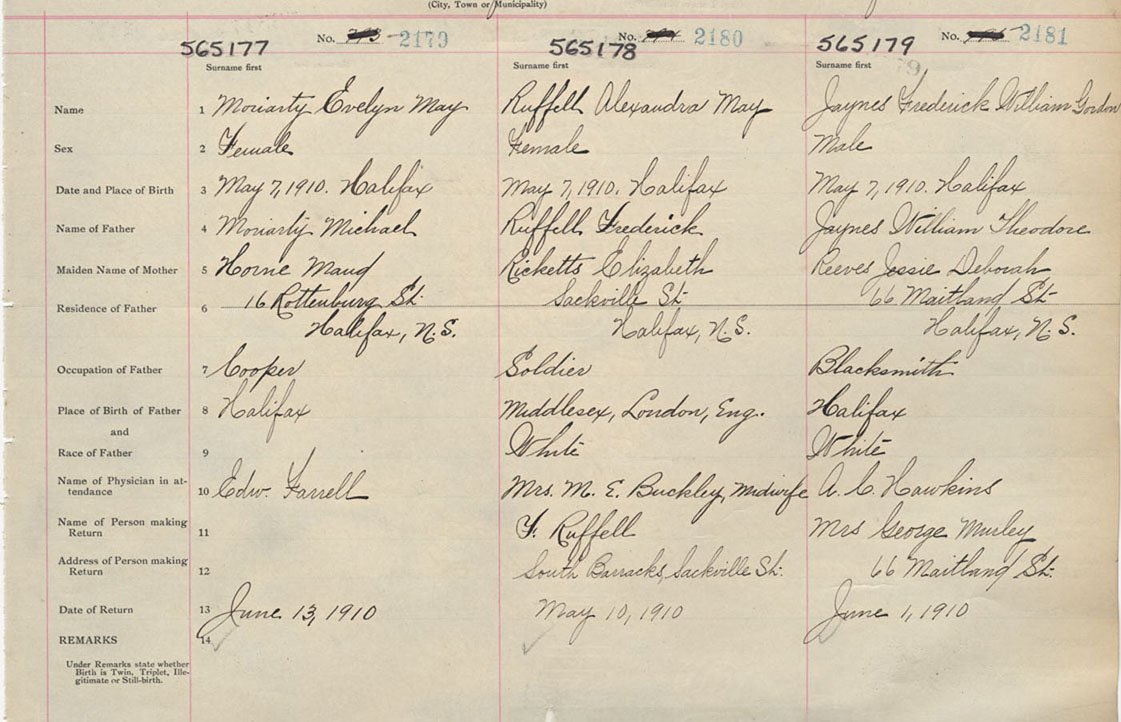 (City, Town or Municipality)
565177 No. 2179 565178 No. 2180 565179 No. 2181
Surname first Surname first Surname first 79
Name 1 Moriarty Evelyn May Ruffell Alexandra May Jaynes Frederick William Gordon
Sex 2 Female Female Male
Date and Place of Birth 3 May 7, 1910. Halifax May 7, 1910. Halifax May 7, 1910. Halifax
Name of Father 4 Moriarty Michael Ruffell Frederick Jaynes William Theodore
Maiden Name of Mother 5 Horne Maud Ricketts Elizabeth Reeves Jessie Deborah
Residence of Father 6 16 Rottenburg St. Sackville St. 66 Maitland St.
Halifax, N.S. Halifax, N.S. Halifax, N.S.
Occupation of Father 7 Cooper Soldier Blacksmith
Place of Birth of Father 8 Halifax Middlesex, London, Eng. Halifax
and
Race of Father 9 White White
Name of Physician in at-
tendance 10 Edw. Farrell Mrs. M. E. Buckley, Midwife A. C. Hawkins
Name of Person making
Return 11 F. Ruffell Mrs George
Address of Person making
Return 12 South Barracks, Sackville St. 66 Maitland St.
Date of Return 13 June 13, 1910 May 10, 1910 June 1, 1910
REMARKS 14
Under Remarks state whether
Birth is Twin, Triplet, Ille-
gitimate or Still-birth.